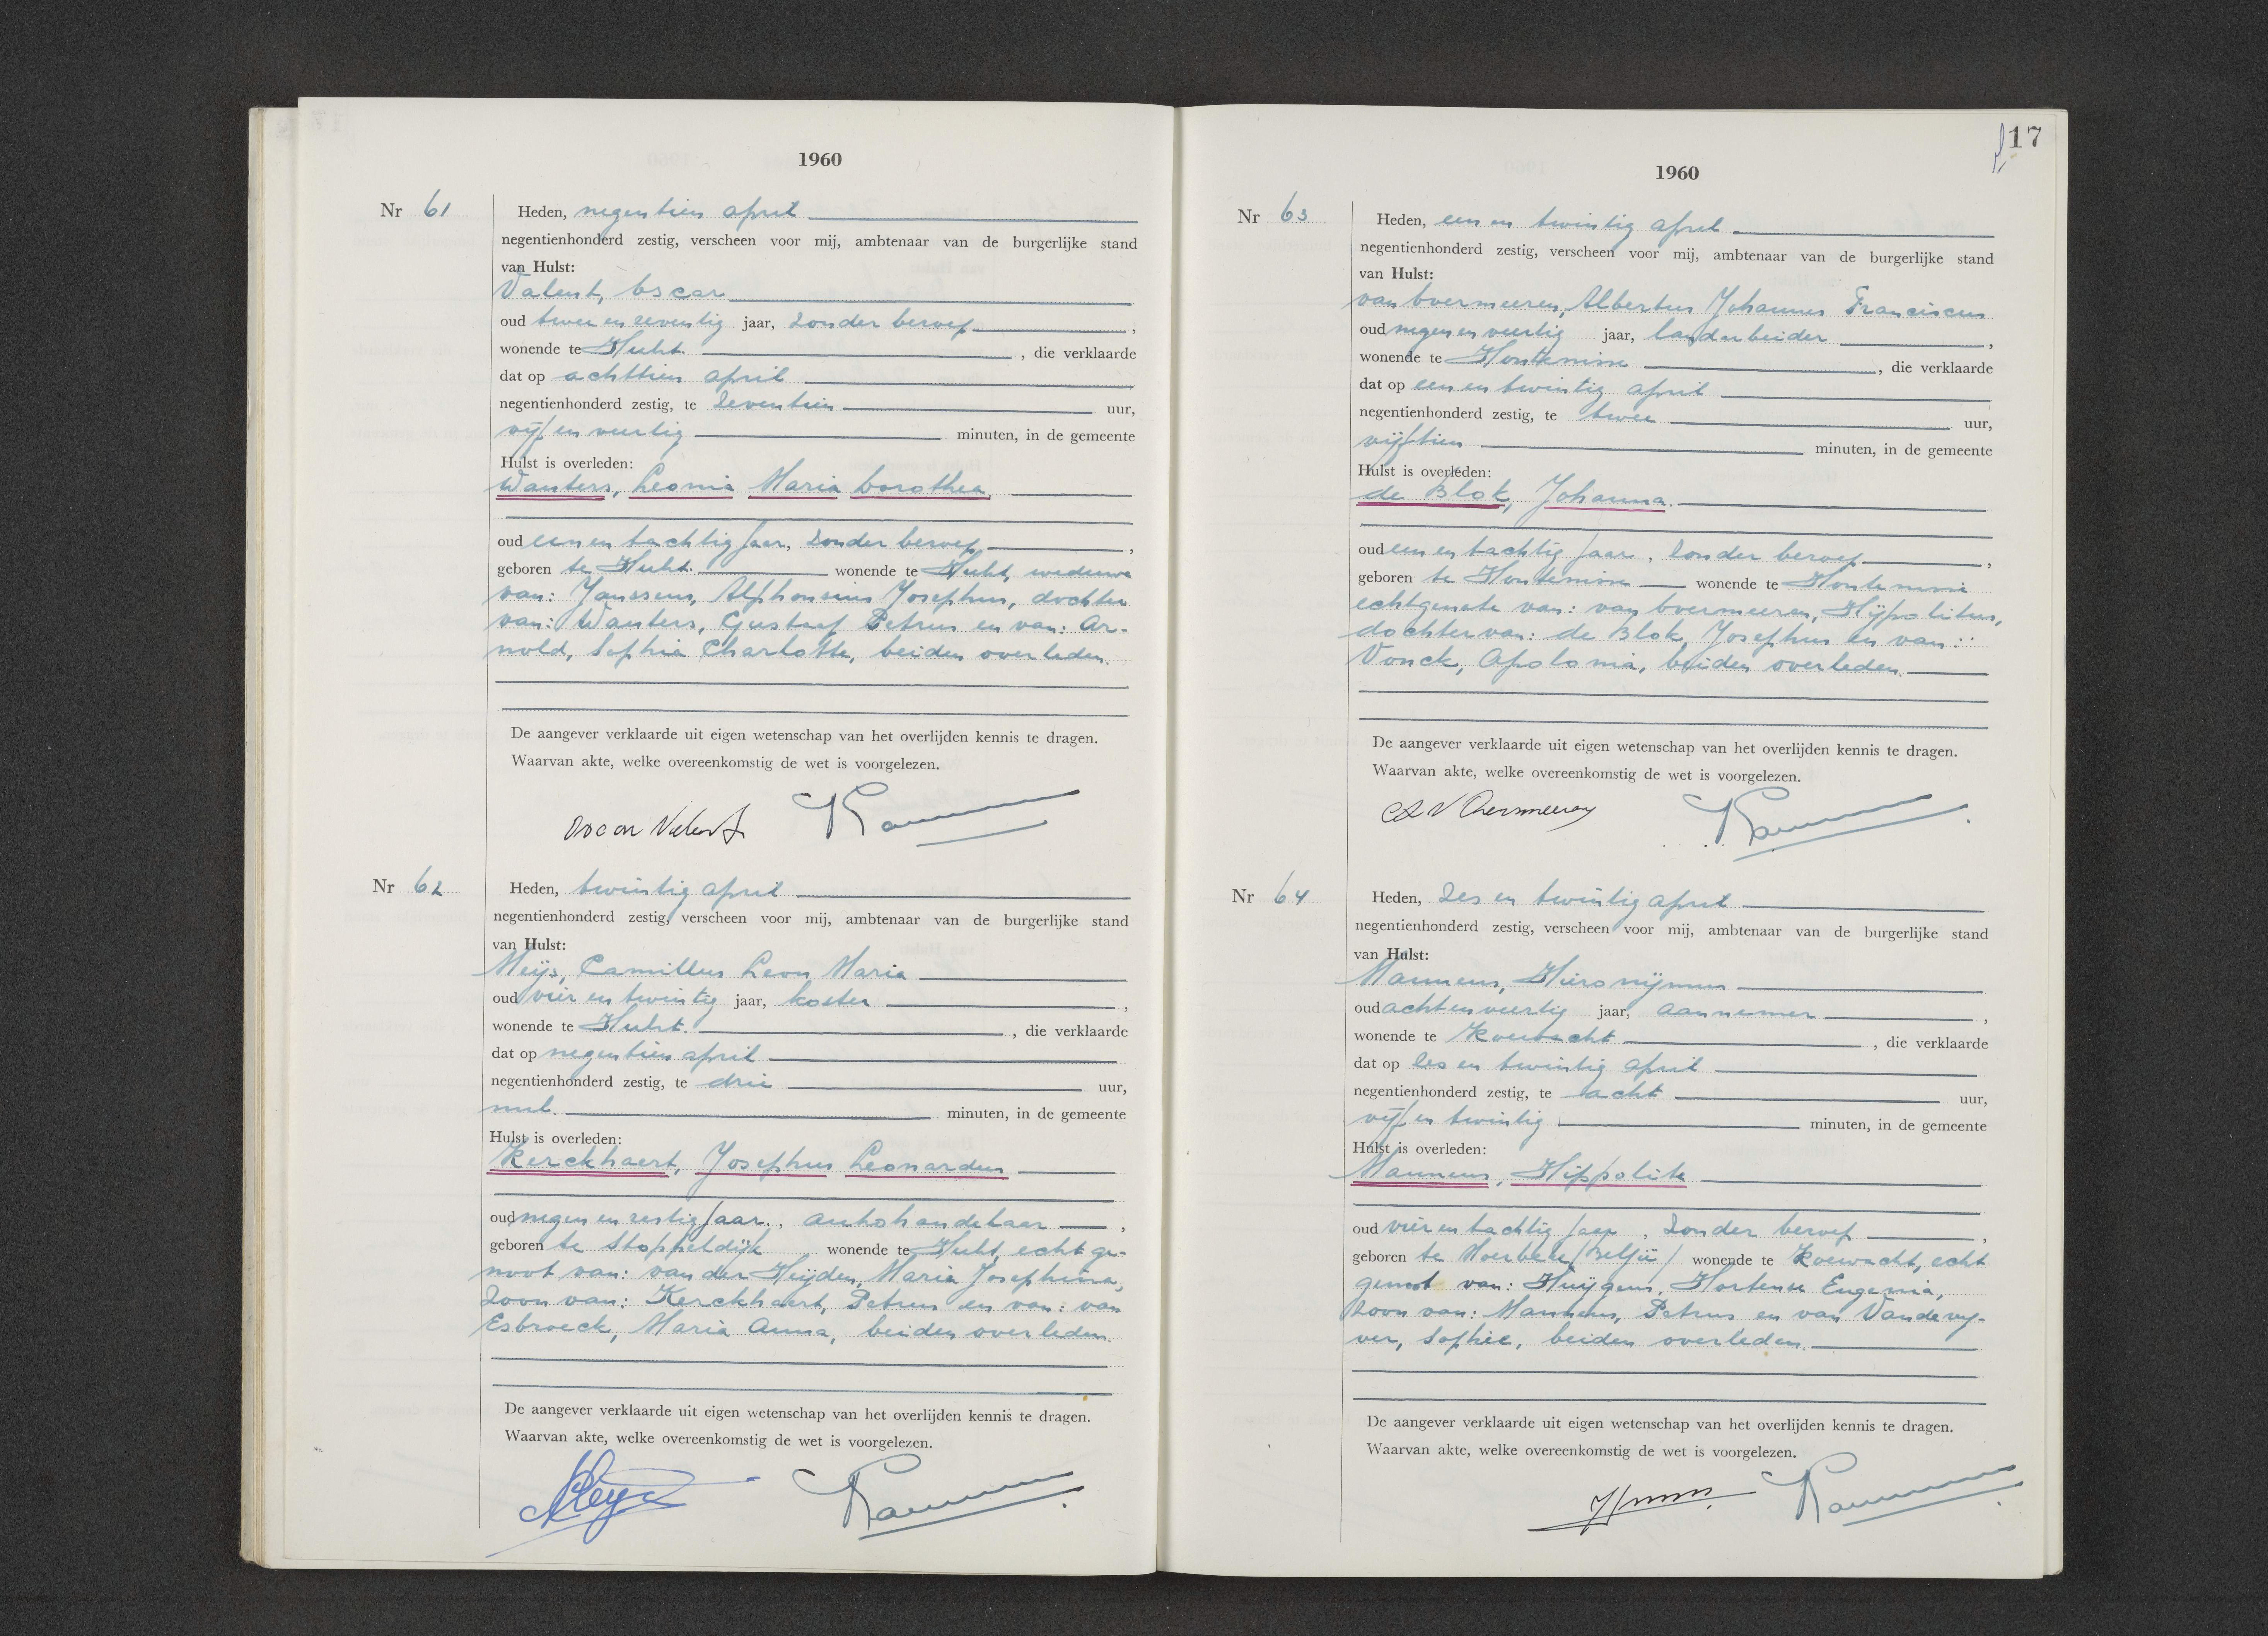 1960
Nr 61
Heden, negentien april
negentienhonderd zestig, verscheen voor mij, ambtenaar van de burgerlijke stand
van Hulst:
Valent, Oscar
oud twee en zeventig jaar, zonder beroep,
wonende te Hulst, die verklaarde
dat op achttien april
negentienhonderd zestig, te zeventien uur,
vijf en veertig minuten, in de gemeente
Hulst is overleden:
Wauters, Leonia Maria Dorothea
oud een en tachtig jaar, zonder beroep,
geboren te Hulst wonende te Hulst, weduwe
van: Janssens, Alphonsius Josephus, dochter
van: Wauters, Gustaaf Petrus en van: Ar-
nold, Sophia Charlotte, beiden overleden.
De aangever verklaarde uit eigen wetenschap van het overlijden kennis te dragen.
Waarvan akte, welke overeenkomstig de wet is voorgelezen.
Oscar Valent
Nr 62
Heden, twintig april
negentienhonderd zestig, verscheen voor mij, ambtenaar van de burgerlijke stand
van Hulst:
Meijs, Camillus Leon Maria
oud vier en twintig jaar, koster,
wonende te Hulst, die verklaarde
dat op negentien april
negentienhonderd zestig, te drie uur,
nul minuten, in de gemeente
Hulst is overleden:
Kerckhaert, Josephus Leonardus
oud negen en zestig jaar, autohandelaar,
geboren te Stoppeldijk wonende te Hulst, echtge-
noot van: van der Heijden, Maria Josephina,
zoon van: Kerckhaert, Petrus en van: van
Esbroeck, Maria Anna, beiden overleden.
De aangever verklaarde uit eigen wetenschap van het overlijden kennis te dragen.
Waarvan akte, welke overeenkomstig de wet is voorgelezen.
Meijs
17
1960
Nr 63
Heden, een en twintig april
negentienhonderd zestig, verscheen voor mij, ambtenaar van de burgerlijke stand
van Hulst:
van Overmeeren, Albertus Johannes Franciscus
oud negen en veertig jaar, landarbeider,
wonende te Hontenisse, die verklaarde
dat op een en twintig april
negentienhonderd zestig, te twee uur,
vijftien minuten, in de gemeente
Hulst is overleden:
de Blok, Johanna
oud een en tachtig jaar, zonder beroep,
geboren te Hontenisse wonende te Hontenisse
echtgenote van: van Overmeeren, Hijpolitus,
dochter van: de Blok, Josephus en van:
Vonck, Apolonia, beiden overleden.
De aangever verklaarde uit eigen wetenschap van het overlijden kennis te dragen.
Waarvan akte, welke overeenkomstig de wet is voorgelezen.
Nr 64
Heden, zes en twintig april
negentienhonderd zestig, verscheen voor mij, ambtenaar van de burgerlijke stand
van Hulst:
Mannens, Hieronijmus
oud acht en veertig jaar, aannemer,
wonende te Koewacht, die verklaarde
dat op zes en twintig april
negentienhonderd zestig, te acht uur,
vijf en twintig minuten, in de gemeente
Hulst is overleden:
Mannens, Hippolite
oud vier en tachtig jaar, zonder beroep,
geboren te Moerbeke /België/ wonende te Koewacht, echt
genoot van: Huijgens, Hortense Eugenia,
zoon van: Mannens, Petrus en van Vandevy-
ver, Sophie, beiden overleden.
De aangever verklaarde uit eigen wetenschap van het overlijden kennis te dragen.
Waarvan akte, welke overeenkomstig de wet is voorgelezen.